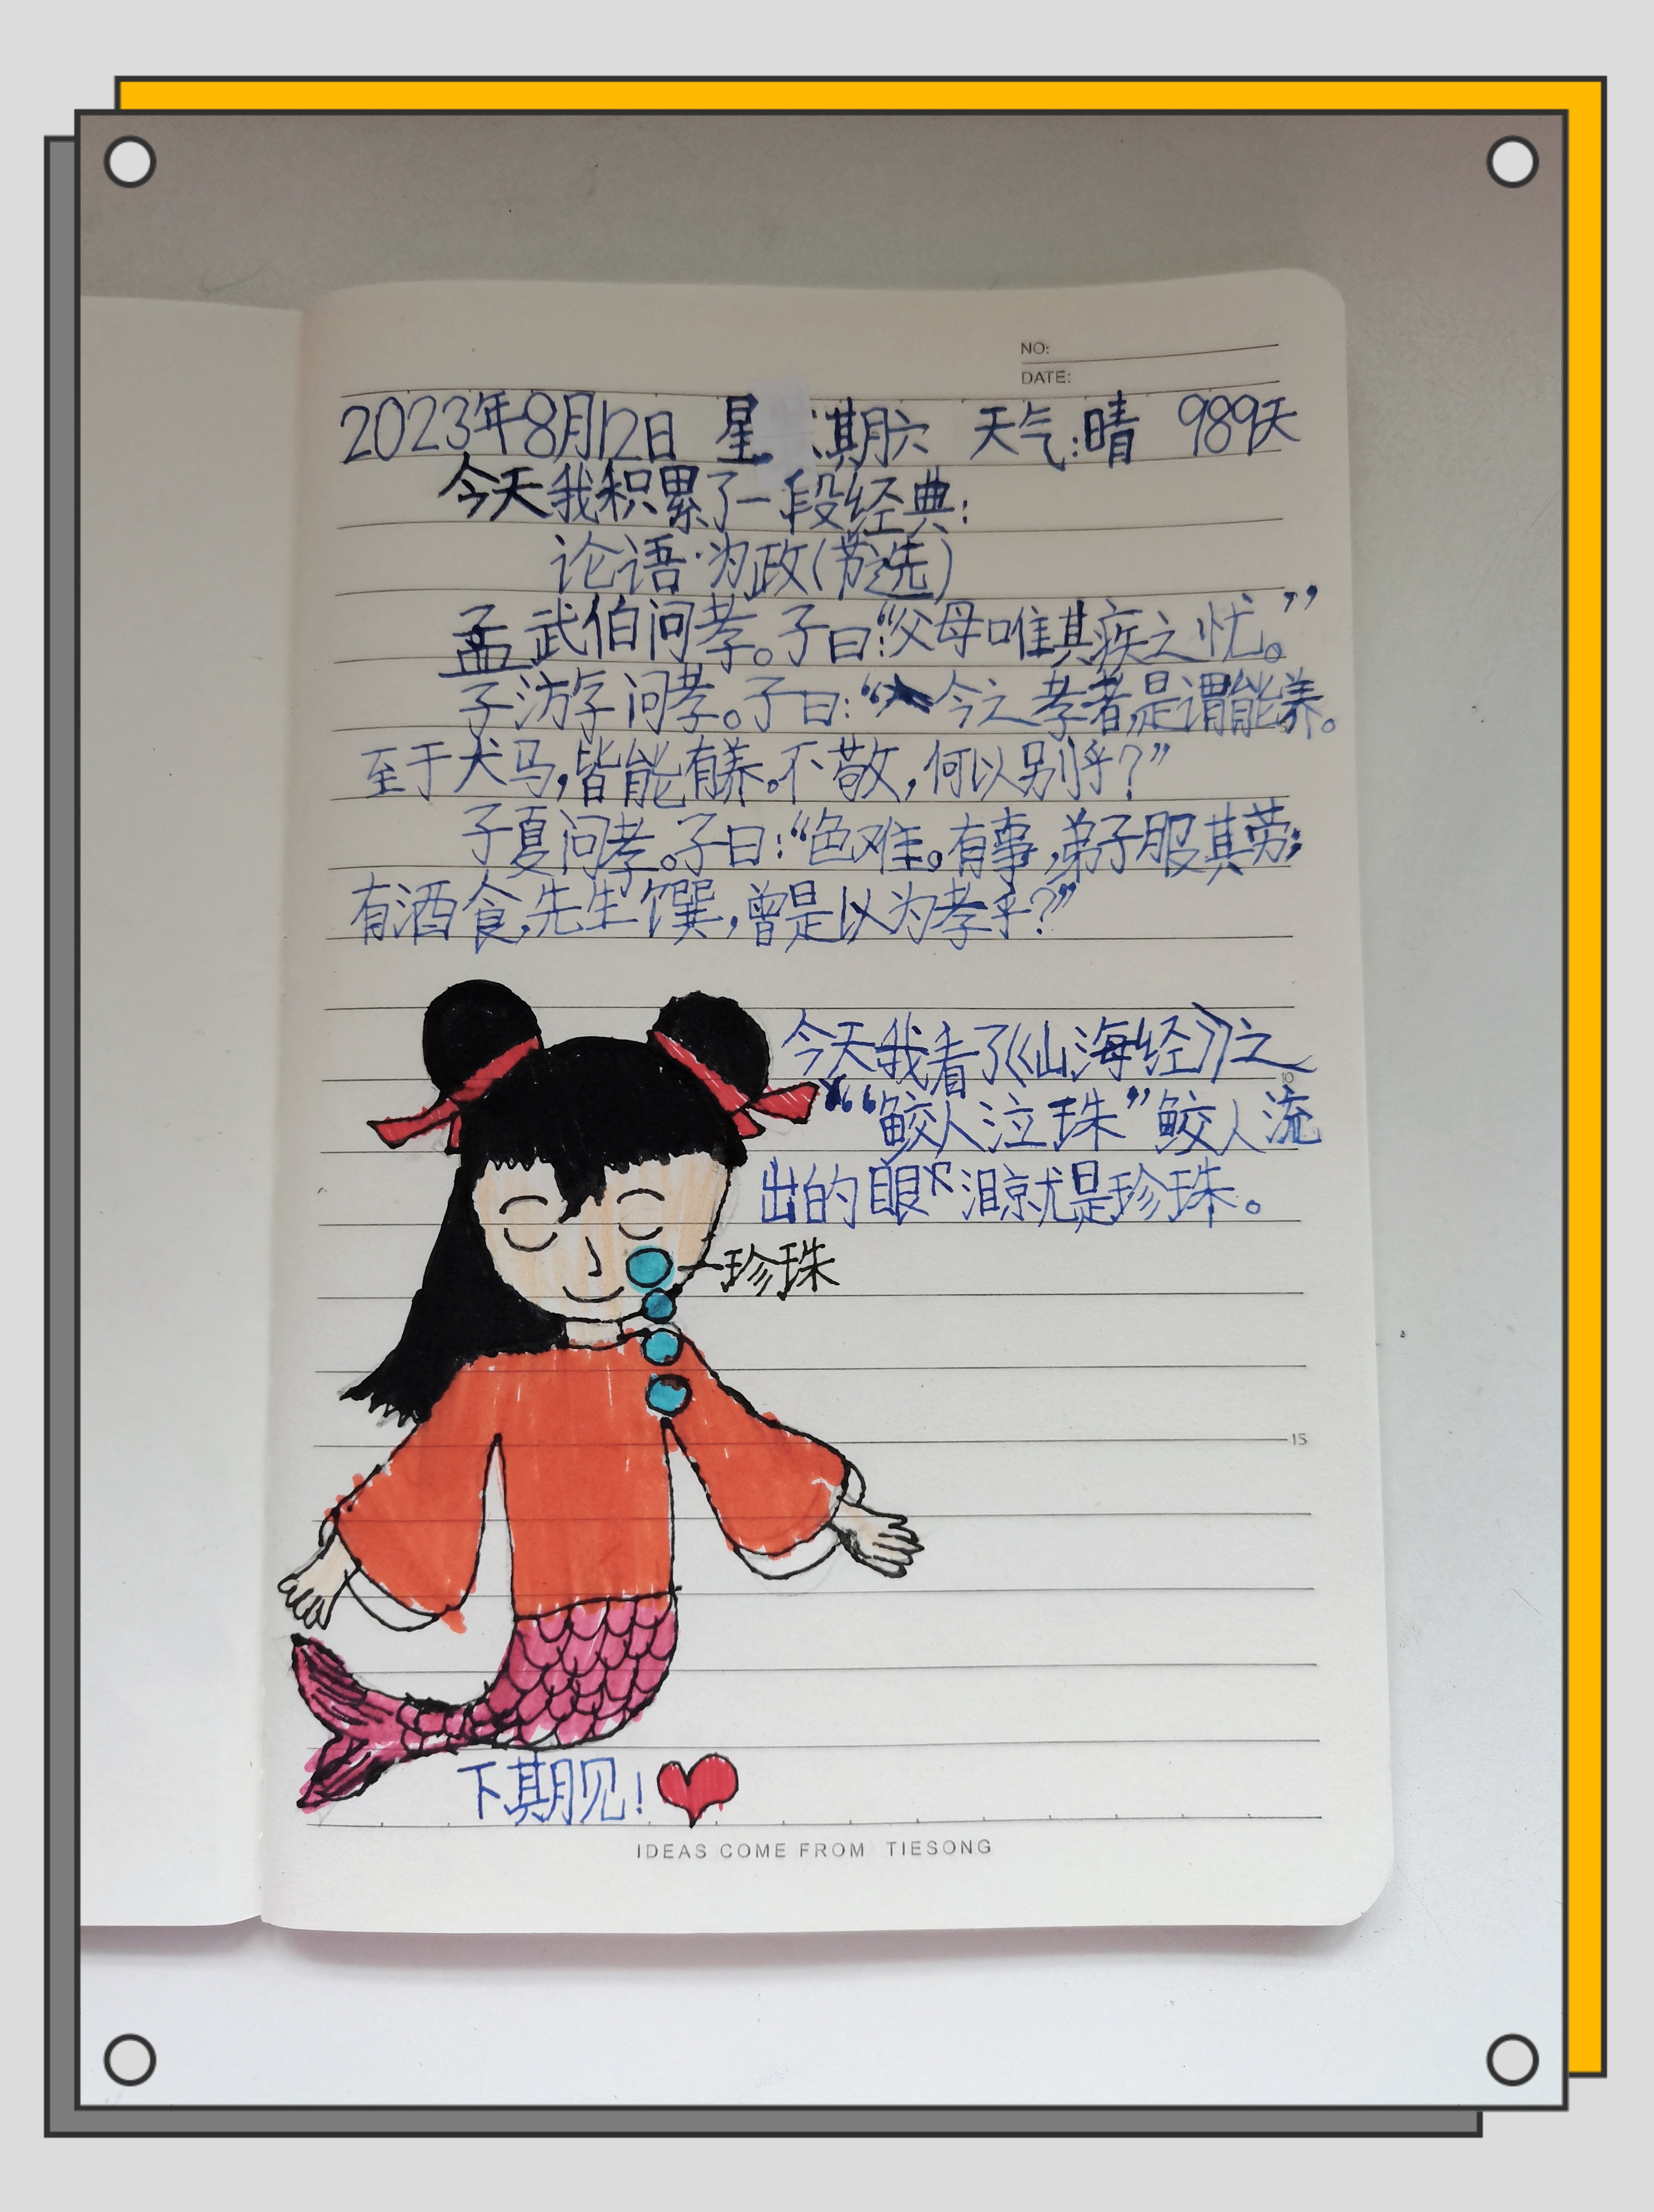 NO:
DATE:
2023年8月12日 星期六 天气:晴 989天
今天我积累了一段经典:
论语·为政(节选)
孟武伯问孝。子曰:“父母唯其疾之忧。”
子游问孝。子曰:“今之孝者,是谓能养。
至于犬马,皆能有养。不敬,何以别乎?”
子夏问孝。子曰:“色难。有事,弟子服其劳;
有酒食,先生馔,曾是以为孝乎?”
今天我看了《山海经》之
10
“鲛人泣珠”鲛人流
出的眼泪就是珍珠。
珍珠
15
下期见!
IDEAS COME FROM TIESONG